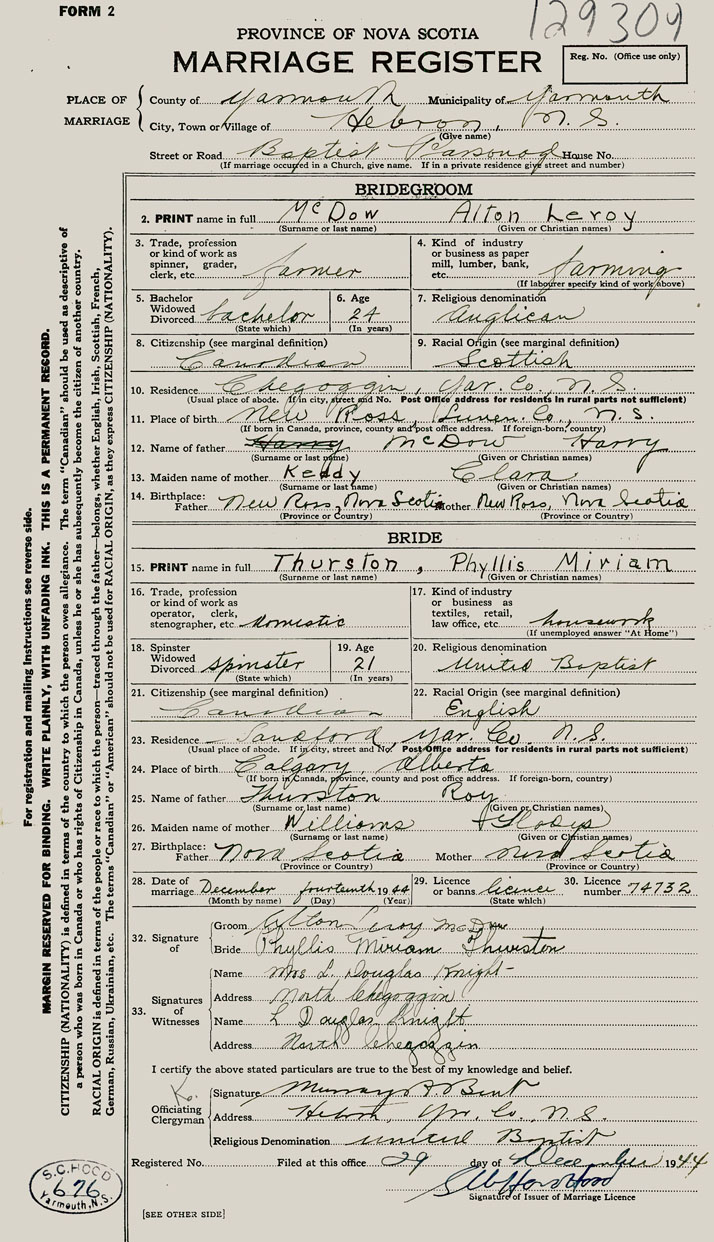 FORM 2
129309
PROVINCE OF NOVA SCOTIA
MARRIAGE REGISTER
Reg. No. (Office use only)
PLACE OF MARRIAGE
County of Yarmouth Municipality of Yarmouth
City, Town or Village of Hebron, N. S.
(Give name)
Street or Road Baptist Parsonage House No.
(If marriage occured in a Church, give name. If in a private residence give street and number)
BRIDEGROOM
2. PRINT name in full McDow Alton Leroy
(Surname or last name) (Given or Christian names)
3. Trade, profession or kind of work as spinner, grader, clerk, etc. farmer
4. Kind of industry or business as paper mill, lumber, bank, etc. farming
(If labourer specify kind of work above)
5. Bachelor Widowed Divorced bachelor
(State which)
6. Age 24
(In years)
7. Religious denomination Anglican
8. Citizenship (see marginal definition) Canadian
9. Racial Origin (see marginal definition) Scottish
10. Residence Chegoggin, Yar. Co., N. S.
(Usual place of abode. If in city, street and No. Post Office address for residents in rural parts not sufficient)
11. Place of birth New Ross, Lunen. Co., N. S.
(If born in Canada, province, county and post office address. If foreign-born, country)
12. Name of father Harry McDow Harry
(Surname or last name) (Given or Christian names)
13. Maiden name of mother Keddy Clara
(Surname or last name) (Given or Christian names)
14. Birthplace: Father New Ross, Nova Scotia Mother New Ross, Nova Scotia
(Province or Country) (Province or Country)
BRIDE
15. PRINT name in full Thurston, Phyllis Miriam
(Surname or last name) (Given or Christian names)
16. Trade, profession or kind of work as operator, clerk, stenographer, etc. domestic
17. Kind of industry or business as textiles, retail, law office, etc. housework
(If unemployed answer "At Home")
18. Spinster Widowed Divorced spinster
(State which)
19. Age 21
(In years)
20. Religious denomination United Baptist
21. Citizenship (see marginal definition) Canadian
22. Racial Origin (see marginal definition) English
23. Residence Sandford, Yar. Co. N. S.
(Usual place of abode. If in city, street and No. Post Office address for residents in rural parts not sufficient)
24. Place of birth Calgary, Alberta
(If born in Canada, province, county and post office address. If foreign-born, country)
25. Name of father Thurston Roy
(Surname or last name) (Given or Christian names)
26. Maiden name of mother Williams Gladys
(Surname or last name) (Given or Christian names)
27. Birthplace: Father Nova Scotia Mother Nova Scotia
(Province or Country) (Province or Country)
28. Date of marriage December fourteenth 1944
(Month by name) (Day) (Year)
29. Licence or banns licence
(State which)
30. Licence number 74732
32. Signature of
Groom Alton Leroy McDow
Bride Phyllis Miriam Thurston
33. Signatures of Witnesses
Name Mrs L. Douglas Knight
Address North Chegoggin
Name L Douglas Knight
Address North Chegoggin
I certify the above stated particulars are true to the best of my knowledge and belief.
Officiating Clergyman
Signature Murray A. Bent
Address Hebron, Yar. Co. N. S.
Religious Denomination United Baptist
Registered No. Filed at this office 29 day of December 1944
Signature of Issuer of Marriage Licence
[SEE OTHER SIDE]
S. C. HOOD
676
Yarmouth, N.S.
For registration and mailing instructions see reverse side.
MARGIN RESERVED FOR BINDING. WRITE PLAINLY, WITH UNFADING INK. THIS IS A PERMANENT RECORD.
CITIZENSHIP (NATIONALITY) is defined in terms of the country to which the person owes allegiance. The term "Canadian" should be used as descriptive of
a person who was born in Canada or who has rights of Citizenship in Canada, unless he or she has subsequently become the citizen of another country.
RACIAL ORIGIN is defined in terms of the people or race to which the person—traced through the father—belongs, whether English, Irish, Scottish, French,
German, Russian, Ukrainian, etc. The terms "Canadian" or "American" should not be used for RACIAL ORIGIN, as they express CITIZENSHIP (NATIONALITY).